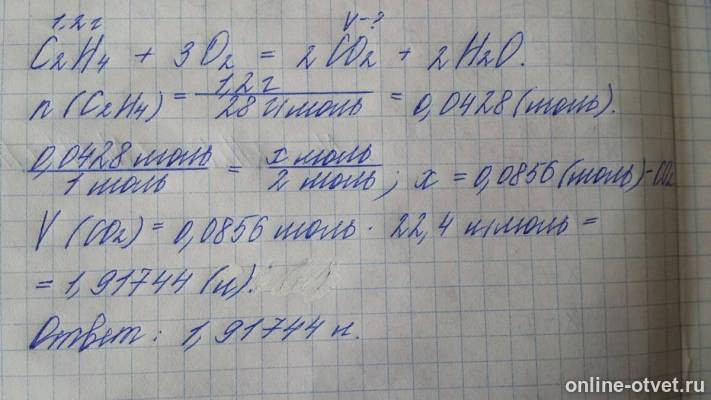 1,2 г V-?
C2H4 + 3O2 = 2CO2 + 2H2O.
n (C2H4) = 1,2 г / 28 г/моль = 0,0428 (моль).
0,0428 моль / 1 моль = x моль / 2 моль; x = 0,0856 (моль) - CO2
V (CO2) = 0,0856 моль · 22,4 л/моль =
= 1,91744 (л).
Ответ: 1,91744 л.
online-otvet.ru